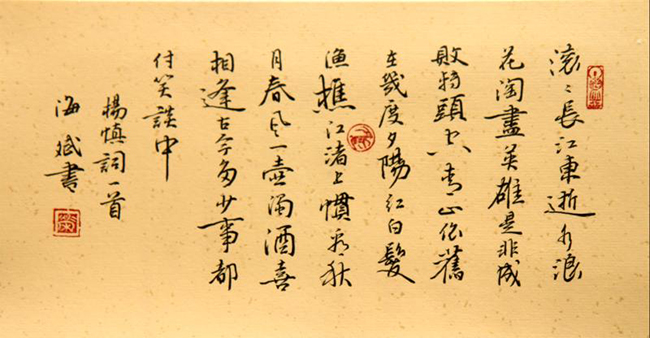 滚〻長江東逝水浪
花淘盡英雄是非成
敗轉頭空青山依舊
在幾度夕陽紅白髮
漁樵江渚上慣看秋
月春風一壺濁酒喜
相逢古今多少事都
付笑談中
楊慎詞一首
海斌書